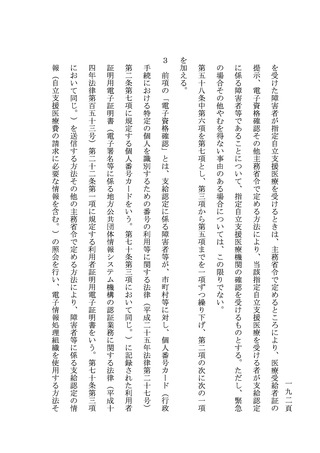 一九二頁
を受けた障害者が指定自立支援医療を受けるときは、主務省令で定めるところにより、医療受給者証の
提示、電子資格確認その他主務省令で定める方法により、当該指定自立支援医療を受ける者が支給認定
に係る障害者等であることについて、指定自立支援医療機関の確認を受けるものとする。ただし、緊急
の場合その他やむを得ない事由のある場合については、この限りでない。
第五十八条中第六項を第七項とし、第三項から第五項までを一項ずつ繰り下げ、第二項の次に次の一項
を加える。
３　前項の「電子資格確認」とは、支給認定に係る障害者等が、市町村等に対し、個人番号カード（行政
手続における特定の個人を識別するための番号の利用等に関する法律（平成二十五年法律第二十七号）
第二条第七項に規定する個人番号カードをいう。第七十条第三項において同じ。）に記録された利用者
証明用電子証明書（電子署名等に係る地方公共団体情報システム機構の認証業務に関する法律（平成十
四年法律第百五十三号）第二十二条第一項に規定する利用者証明用電子証明書をいう。第七十条第三項
において同じ。）を送信する方法その他の主務省令で定める方法により、障害者等に係る支給認定の情
報（自立支援医療費の請求に必要な情報を含む。）の照会を行い、電子情報処理組織を使用する方法そ